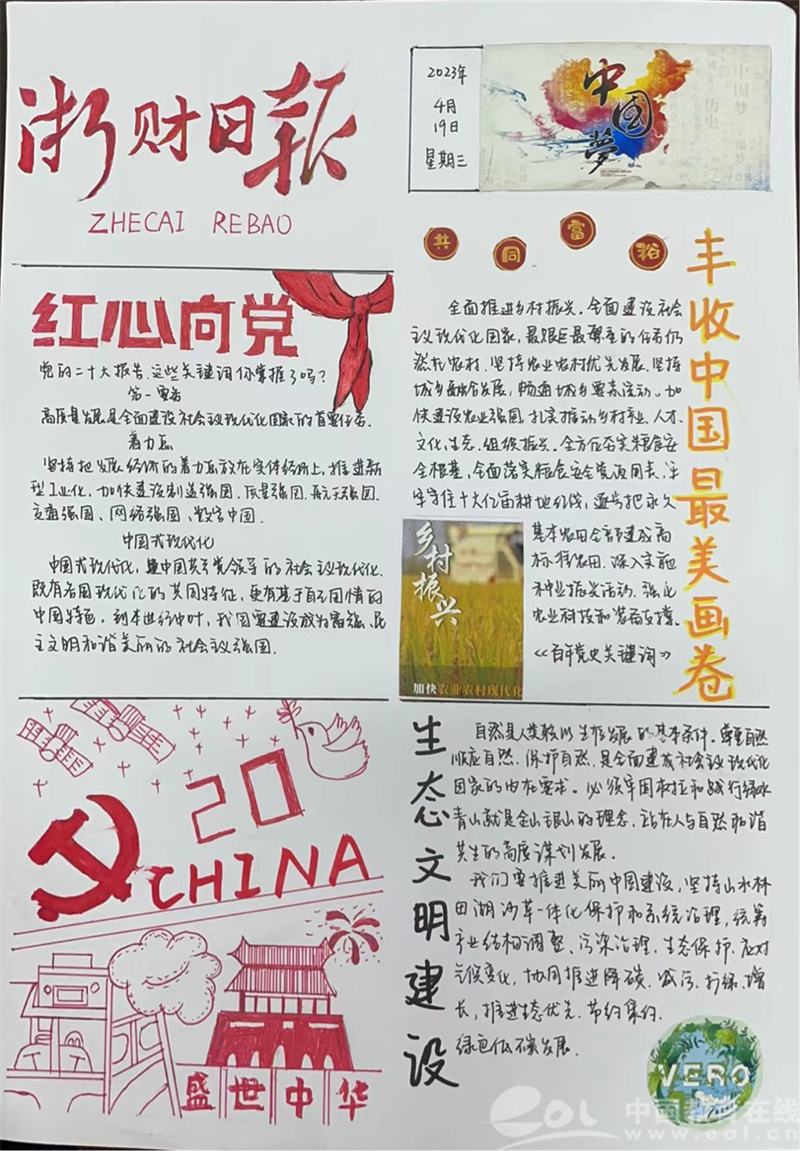 浙财日报
ZHECAI REBAO
2023年
4月
19日
星期三
中国夢
红心向党
党的二十大报告,这些关键词你掌握了吗?
第一要务
高质量发展是全面建设社会主义现代化国家的首要任务.
着力点
坚持把发展经济的着力点放在实体经济上,推进新
型工业化,加快建设制造强国、质量强国、航天强国、
交通强国、网络强国、数字中国.
中国式现代化
中国式现代化,是中国共产党领导的社会主义现代化.
既有各国现代化的共同特征,更有基于自己国情的
中国特色,到本世纪中叶,我国要建设成为富强、民
主文明和谐美丽的社会主义强国.
共同富裕
丰收中国最美画卷
全面推进乡村振兴.全面建设社会
主义现代化国家,最艰巨最繁重的任务仍
然在农村.坚持农业农村优先发展,坚持
城乡融合发展,畅通城乡要素流动.加
快建设农业强国,扎实推动乡村产业、人才、
文化、生态、组织振兴.全方位夯实粮食安
全根基,全面落实粮食安全党政同责,牢
牢守住十八亿亩耕地红线,逐步把永久
基本农田全部建成高
标准农田.深入实施
种业振兴活动,强化
农业科技和装备支撑.
《百年党史关键词》
乡村振兴
加快农业农村现代化
20
CHINA
盛世中华
生态文明建设
自然是人类赖以生存发展的基本条件.尊重自然
顺应自然、保护自然,是全面建成社会主义现代化
国家的内在要求.必须牢固树立和践行绿水
青山就是金山银山的理念,站在人与自然和谐
共生的高度谋划发展.
我们要推进美丽中国建设,坚持山水林
田湖沙草一体化保护和系统治理,统筹
产业结构调整、污染治理、生态保护、应对
气候变化,协同推进降碳、减污、扩绿、增
长,推进生态优先、节约集约、
绿色低碳发展.
VERO
eol 中国教育在线
www.eol.cn